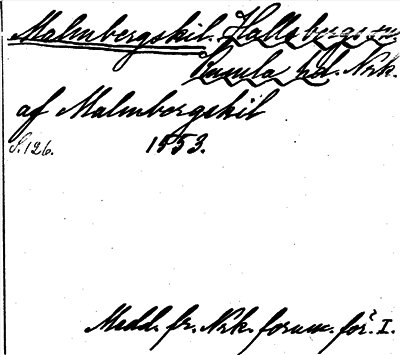 Malmbergskil. Hallsbergs sn,
Kumla hd. Nrk.
af Malmbergskil
S. 126. 1553.
Medd. fr. Nrk. fornm. för. I.